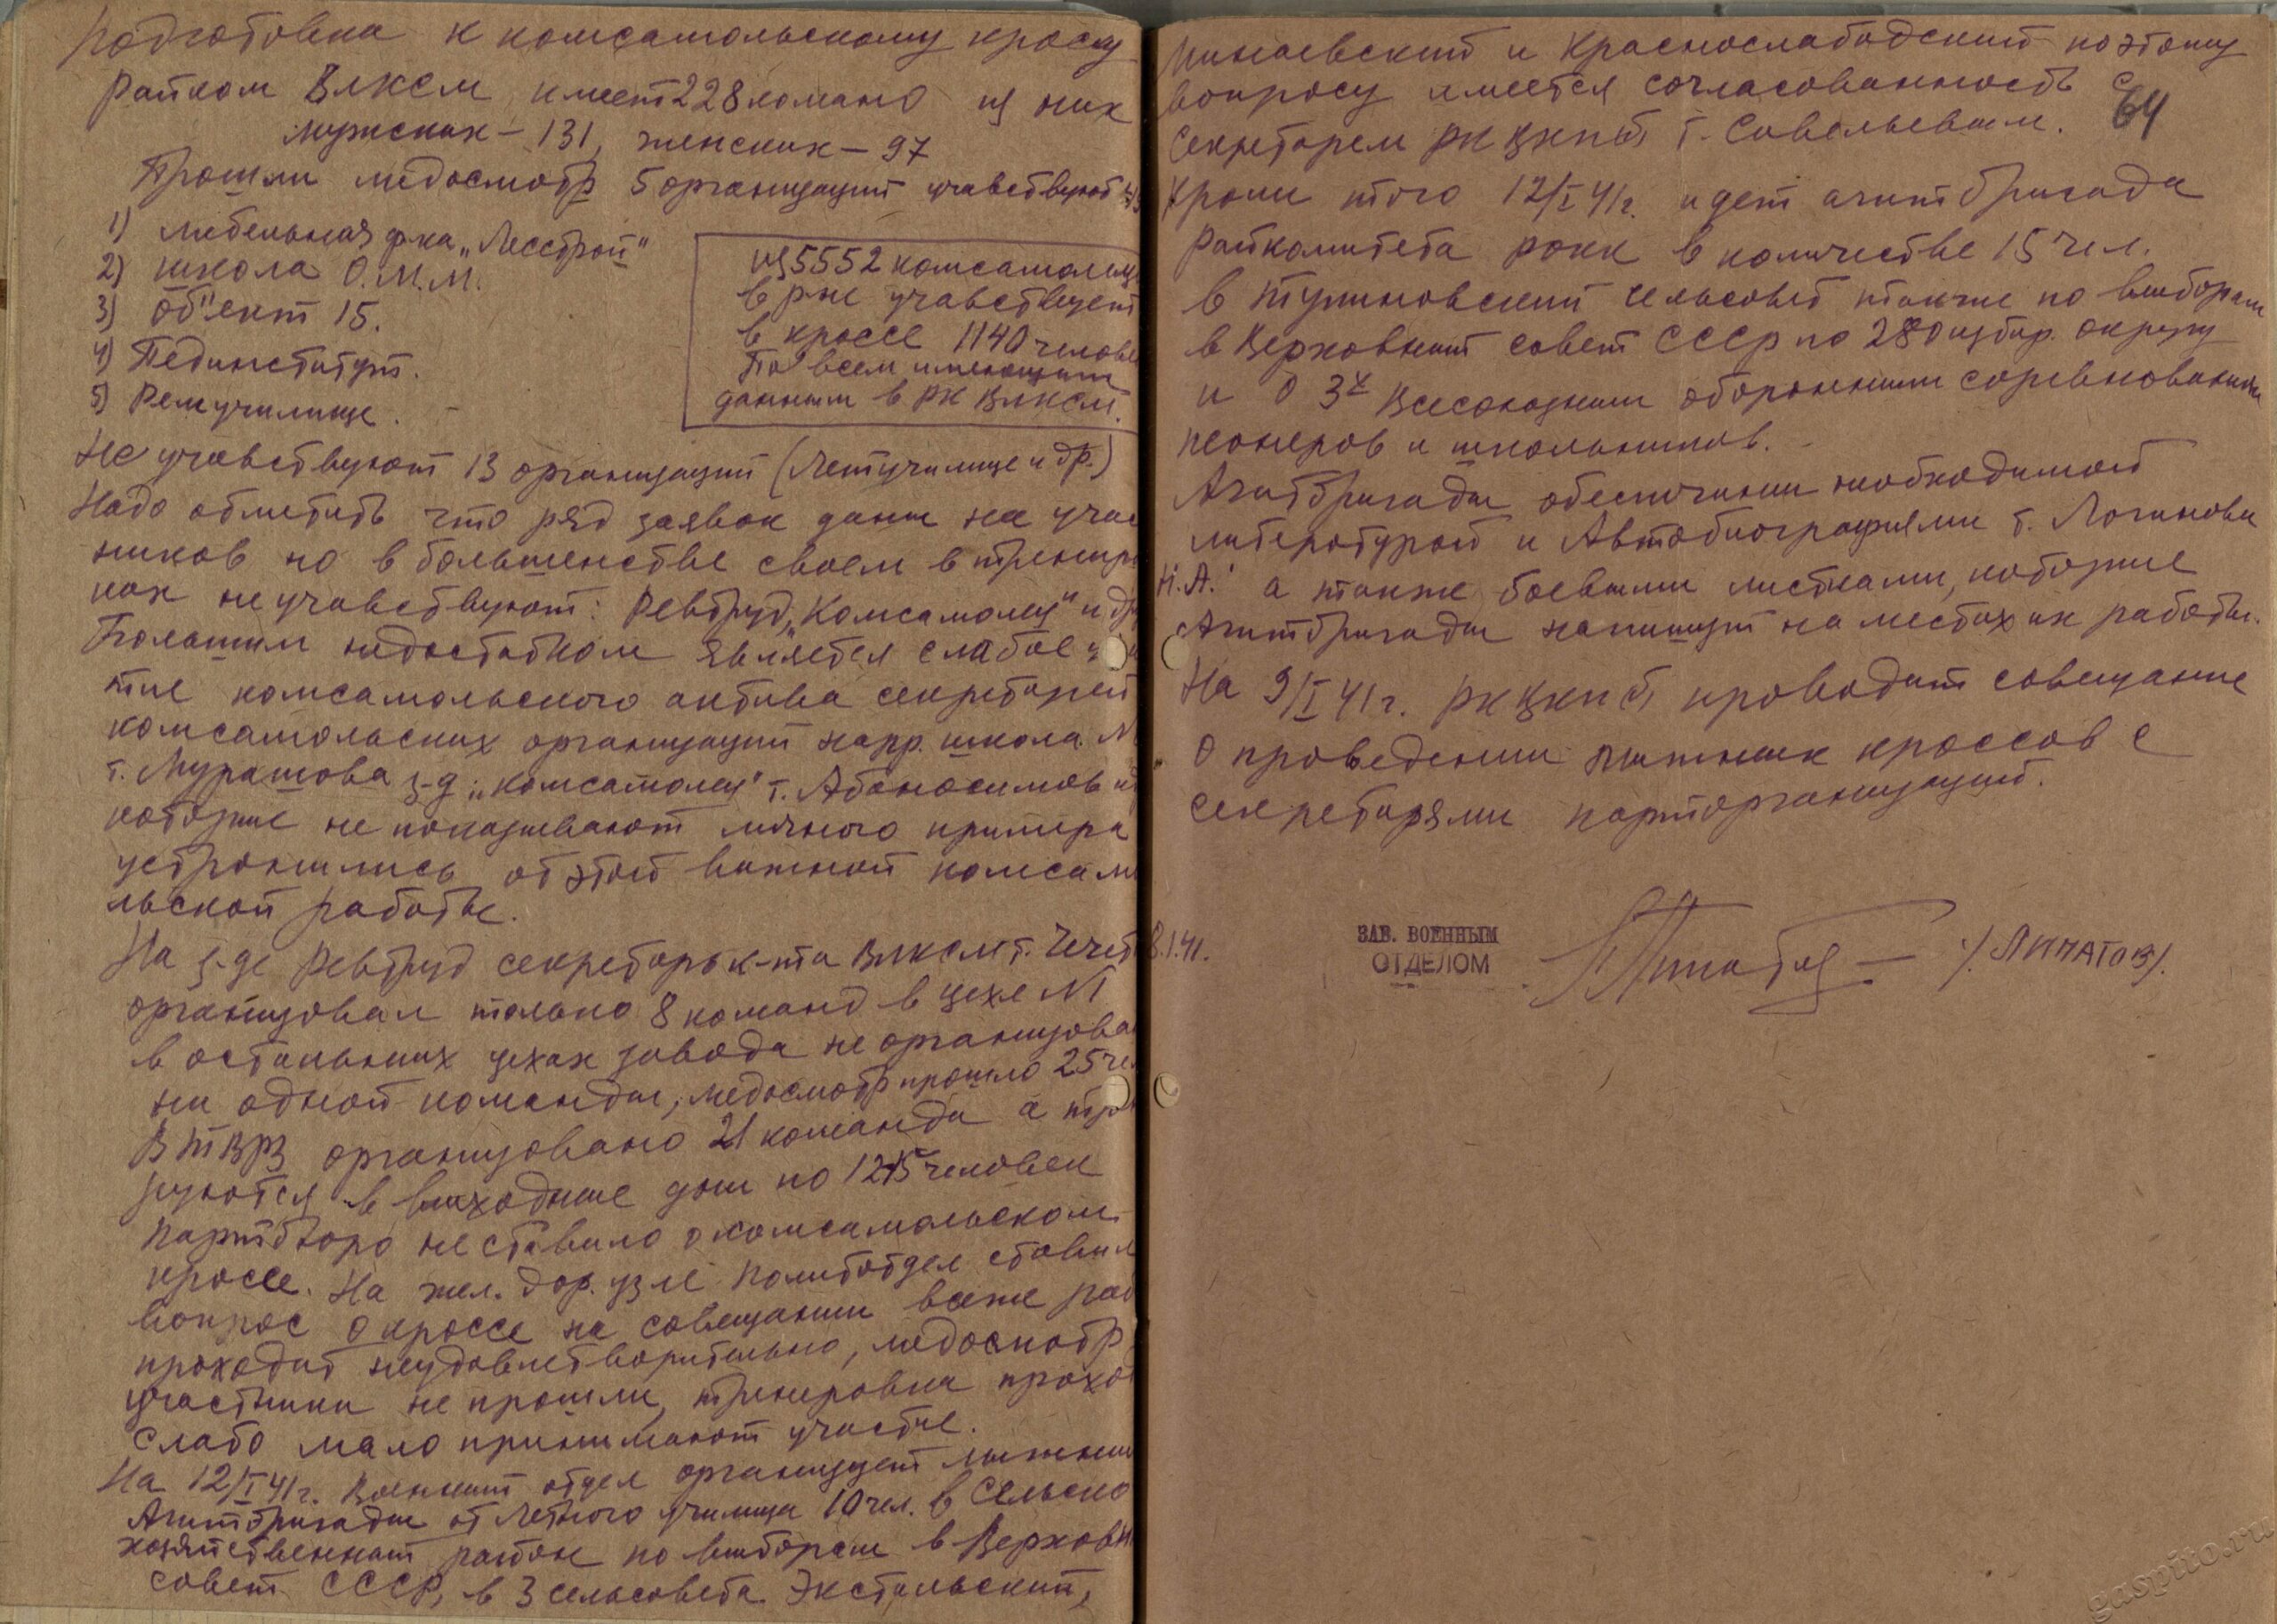 Подготовка к комсамольскому кроссу
Райком ВЛКСМ имеет 228 команд из них
мужских – 131, женских – 97
Прошли медосмотр 5 организаций учавствуют
1) мебельная ф-ка „Лесстрой"
2) школа О.М.М.
3) об"ект 15.
4) Пединститут.
5) Ремучилище.
из 5552 комсамольц
в р-не учавствует
в кроссе 1140 челове
По всем имеющим
данным в РК ВЛКСМ.
Не учавствуют 13 организаций (Летучилище и др.)
Надо отметить что ряд заявок даны на учас
ников но в большенстве своем в трениро
ках не учавствуют: Ревтруд, „Комсамолец" и др
Большим недостатком является слабое
тие комсамольского актива секретарей
комсамольских организаций напр. школа №
т. Мурашова з-д „Комсамолец" т. Абаносимов и др
которые не показывают личного примера
устронились от этой важной комсамо
льской работы.
На з-де Ревтруд секретарь к-та ВЛКСМ т. Чечет
организовал только 8 команд в цехе №1
в остальных цехах завода не организова
ни одной команды, медосмотр прошло 25 чел
В ТВРЗ организовано 21 команда а трен
руются в выходные дни по 12-15 человек
Партбюро не ставило о комсамольском
кроссе. На жел. дор. узле Политотдел ставил
вопрос о кроссе на совещании все же раб
проходит неудовлетворительно, медосмотр
участники не прошли, тренировка проход
слабо мало принимают участие.
На 12/I 41 г. Военный отдел организует лыжные
Агитбригады от Летного училища 10 чел. в Сельско
хозяйственный район по выборам в Верховн
совет СССР, в 3 сельсовета Экстальский,
Минаевский и Краснослабодский поэтому
вопросу имеется согласованность с
64
Секретарем РК ВКП(б) т. Савельевым.
Кроме того 12/I 41 г. идет агитбригада
Райкомитета РОКК в количестве 15 чел.
в Тулиновский сельсовет также по выборам
в Верховный совет СССР по 280 избир. округу
и о 3х Всесоюзным оборонным соревнованиям
пеонеров и школьников.
Агитбригады обеспечены необходимой
литературой и Автобиографиями т. Логинова
Н.А. а также боевыми листками, которые
Агитбригады напишут на местах их работы.
На 9/I 41 г. РК ВКП(б) проводит совещание
о проведении лыжных кроссов с
секретарями парторганизаций.
8.1.41.
ЗАВ. ВОЕННЫМ
ОТДЕЛОМ
/ЛИПАТОВ/.
gaspito.ru